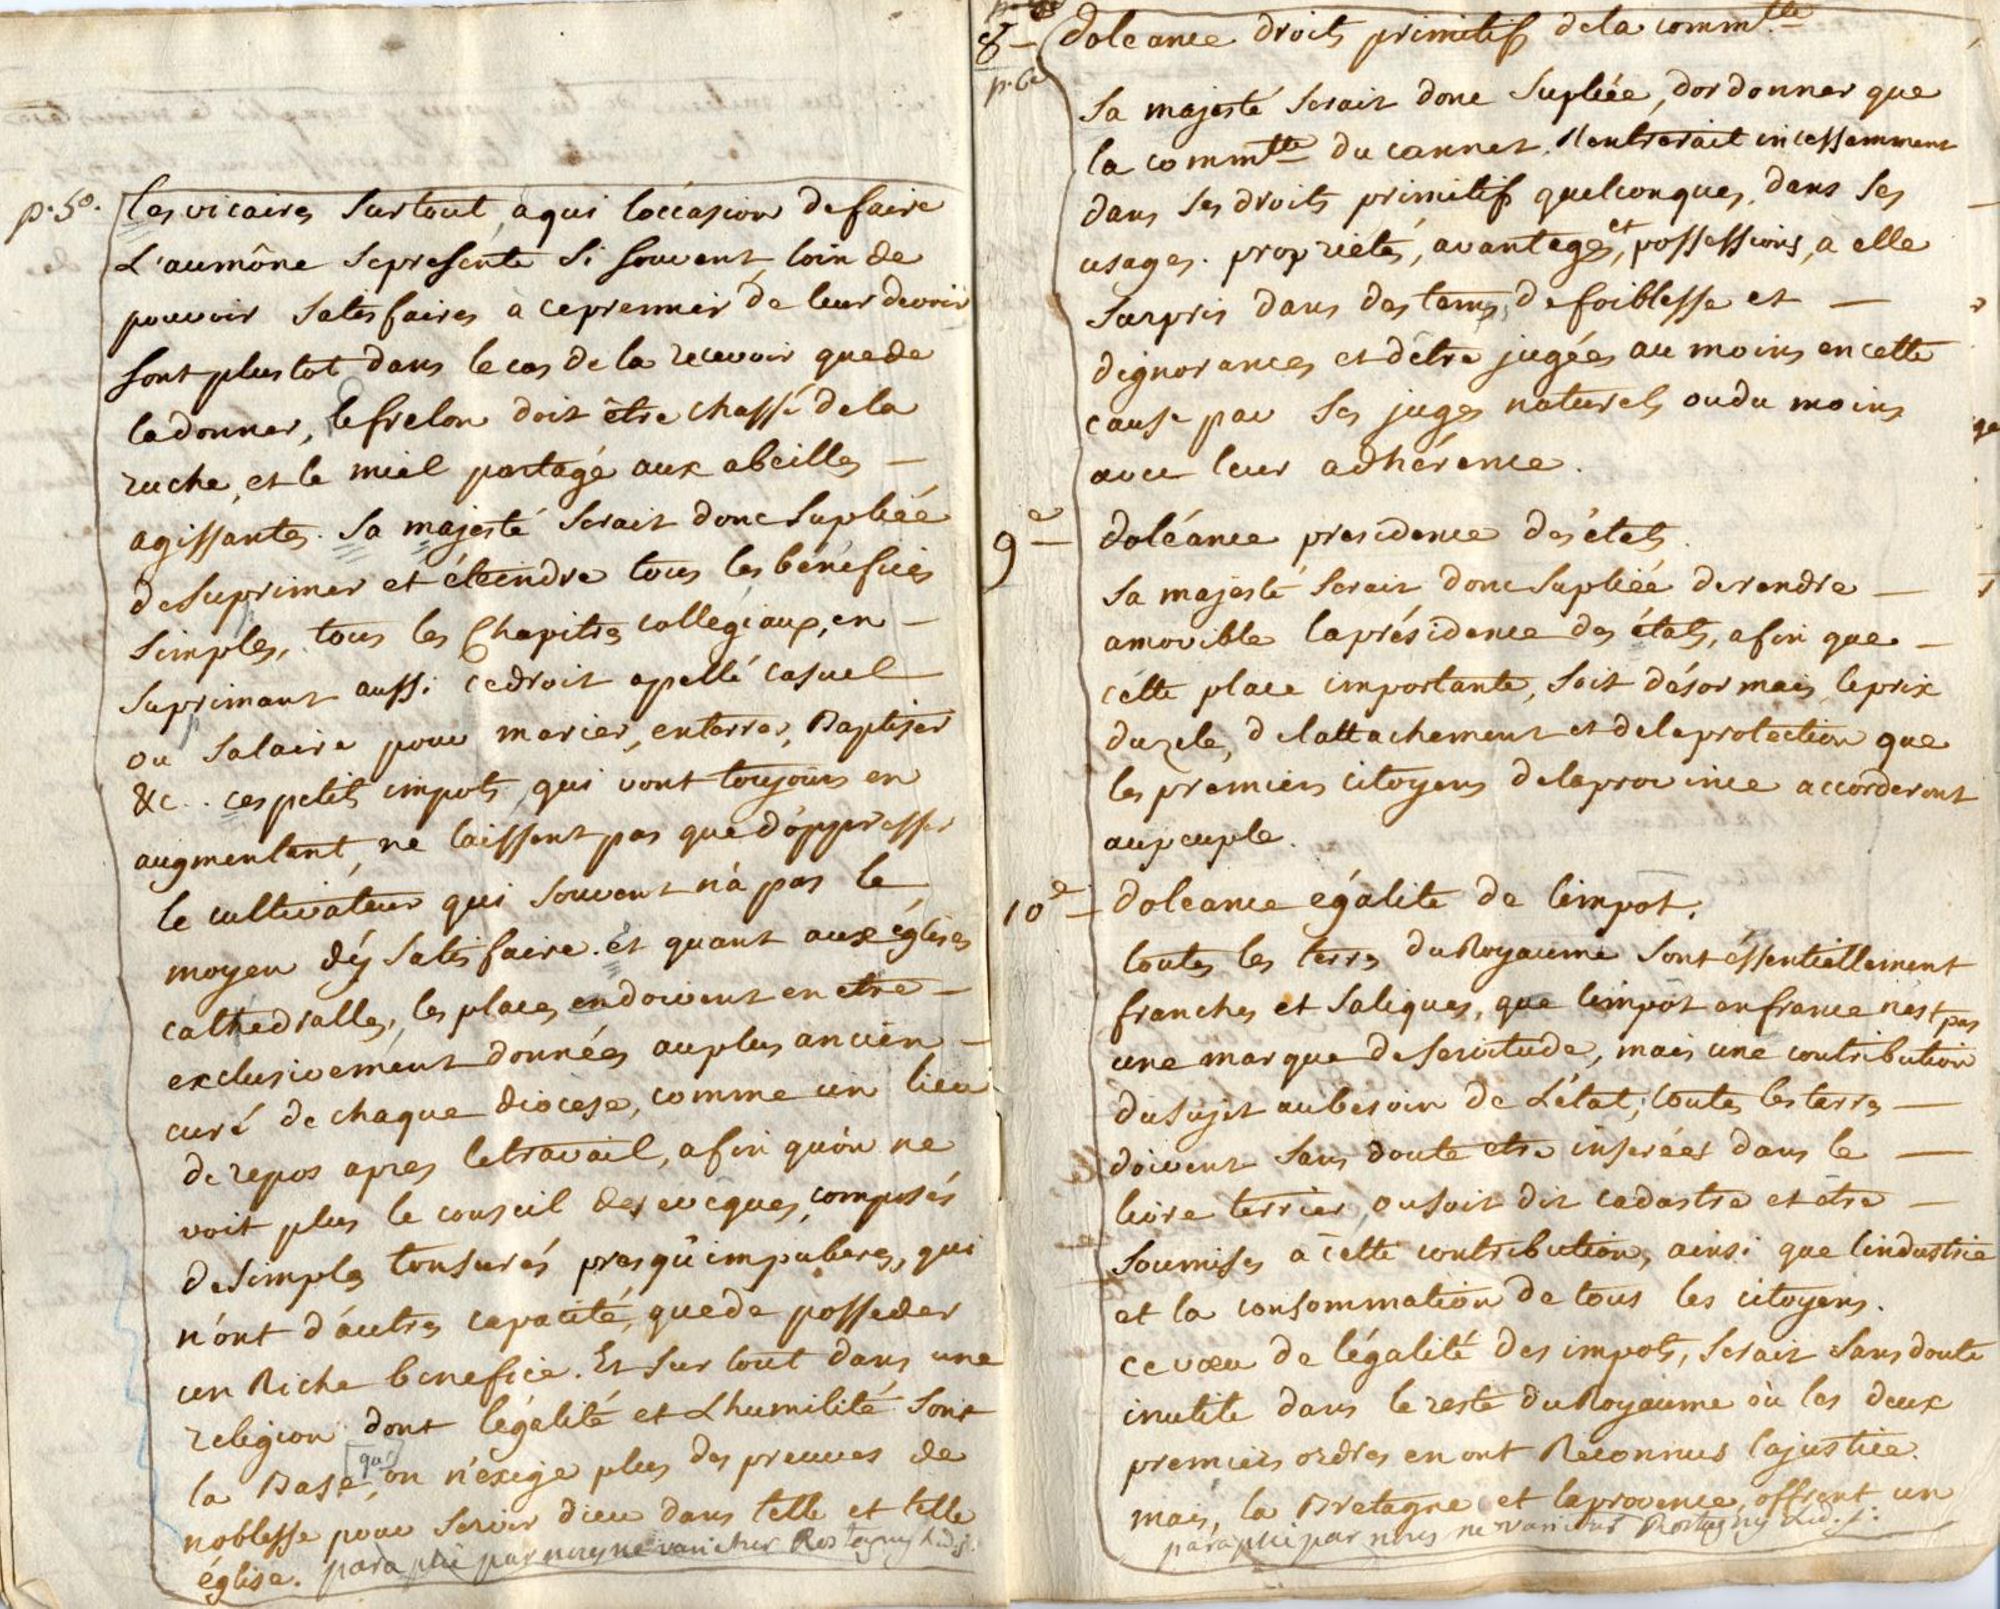 p. 5e.
les vicaires surtout, a qui l'occasion de faire
L'aumône se presente si souvent, loin de
pouvoir satisfaires à ce premier de leur devoir
sont plustot dans le cas de la recevoir que de
la donner, le frelon doit être chassé de la
ruche, et le miel partagé aux abeilles —
agissantes. Sa majesté serait donc supliéé
de suprimer et éteindre tous les bénéfices
simples, tous les Chapitres collegiaux, en —
suprimant aussi ce droit apellé casuel
ou salaire pour marier, enterrer, Baptiser
&c.. ces petits impots, qui vont toujours en
augmentant, ne laissent pas que d'oppresser
le cultivateur qui souvent n'a pas le
moyen d'y satisfaire. et quant aux églises
cathédralles, les places en doivent en etre —
exclusivement données au plus ancien —
curé de chaque diocèse, comme un lieu
de repos apres le travail, afin qu'on ne
voit plus le conseil des evêques, composés
de simples tonsurés presqu'impuberes, qui
n'ont d'autres capacité, que de posseder
un Riche benefice. Et sur tout dans une
religion dont légalité et L'humilité sont
la Base, [qu'] on n'exige plus des preuves de
noblesse pour servir dieu dans telle et telle
église. paraphé par nous ne varietur Rostagny
8e — doleance droits primitifs de la commtté
p. 6e
Sa majesté serait donc supliée, dordonner que
la commtté du cannet, Rentrerait incessemment
dans ses droits primitifs quelconques, dans ses
usages. propriétés, avantages, et possessions, a elle
surpris dans des tems, de foiblesse et —
dignorances et d'être jugées au moins en cette
cause par ses juges naturels ou du moins
avec leur adhérence.
9e — doléance presidence des états.
Sa majesté serait donc supliéé de rendre —
amovible la présidence des états, afin que —
cétte place importante, soit désormais, le prix
du zele, de lattachement et de la protection que
les premiers citoyens de la province accorderont
au peuple.
10e — doleance egalite de limpôt.
toutes les terres du Royaume sont éssentiellement
franches et saliques, que limpôt en france n'est pas
une marque de servitude, mais une contribution
du sujet au besoin de L'état; toutes les terres —
doivent sans doute etre inserées dans le —
livre terrier, ou soit dit cadastre et être —
soumises à cette contribution, ainsi que lindustrie
et la consommation de tous les citoyens.
ce vœu de légalité des impots, serait sans doute
inutile dans le reste du Royaume où les deux
premiers ordres en ont Reconnus la justice.
mais, la Bretagne et la provence, offrent un
paraphé par nous ne varietur Rostagny